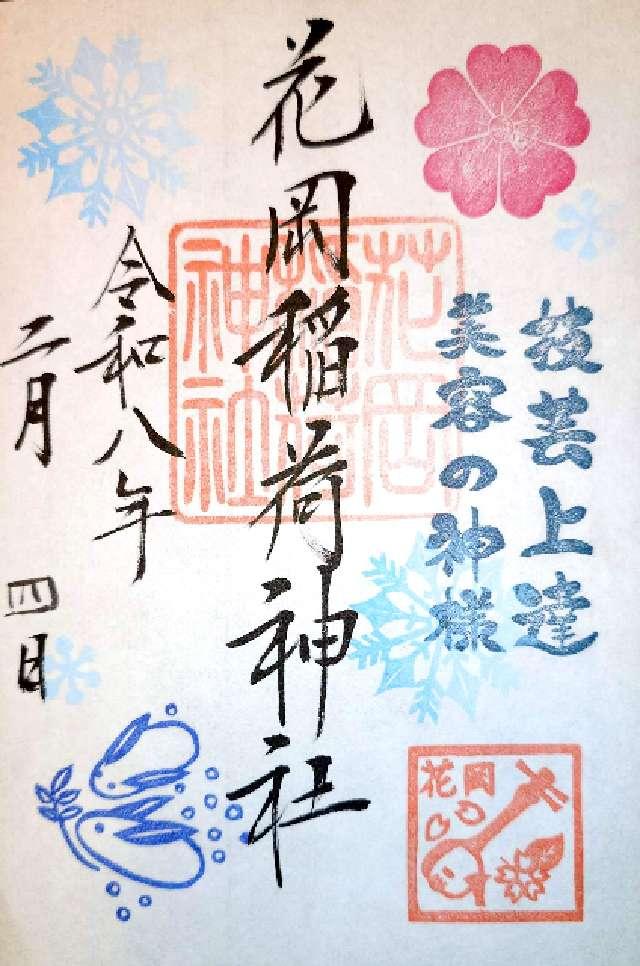 技芸上達
美容の神様
花岡稲荷神社
花岡稲荷神社
令和八年
二月四日
花岡